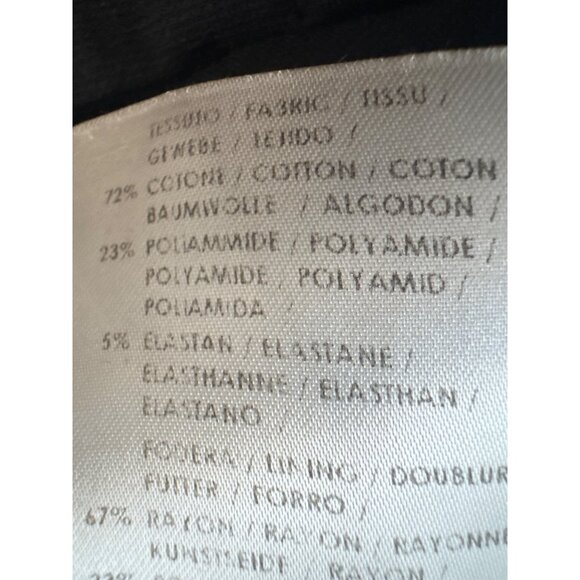 TESSUTO / FABRIC / TISSU /
GEWEBE / TEJIDO /
72% COTONE / COTTON / COTON
BAUMWOLLE / ALGODON /
23% POLIAMMIDE / POLYAMIDE /
POLYAMIDE / POLYAMID /
POLIAMIDA /
5% ELASTAN / ELASTANE /
ELASTHANNE / ELASTHAN /
ELASTANO /
FODERA / LINING / DOUBLUR
FUTTER / FORRO /
67% RAYON / RAYON / RAYONNE
KUNSTSEIDE / RAYON /